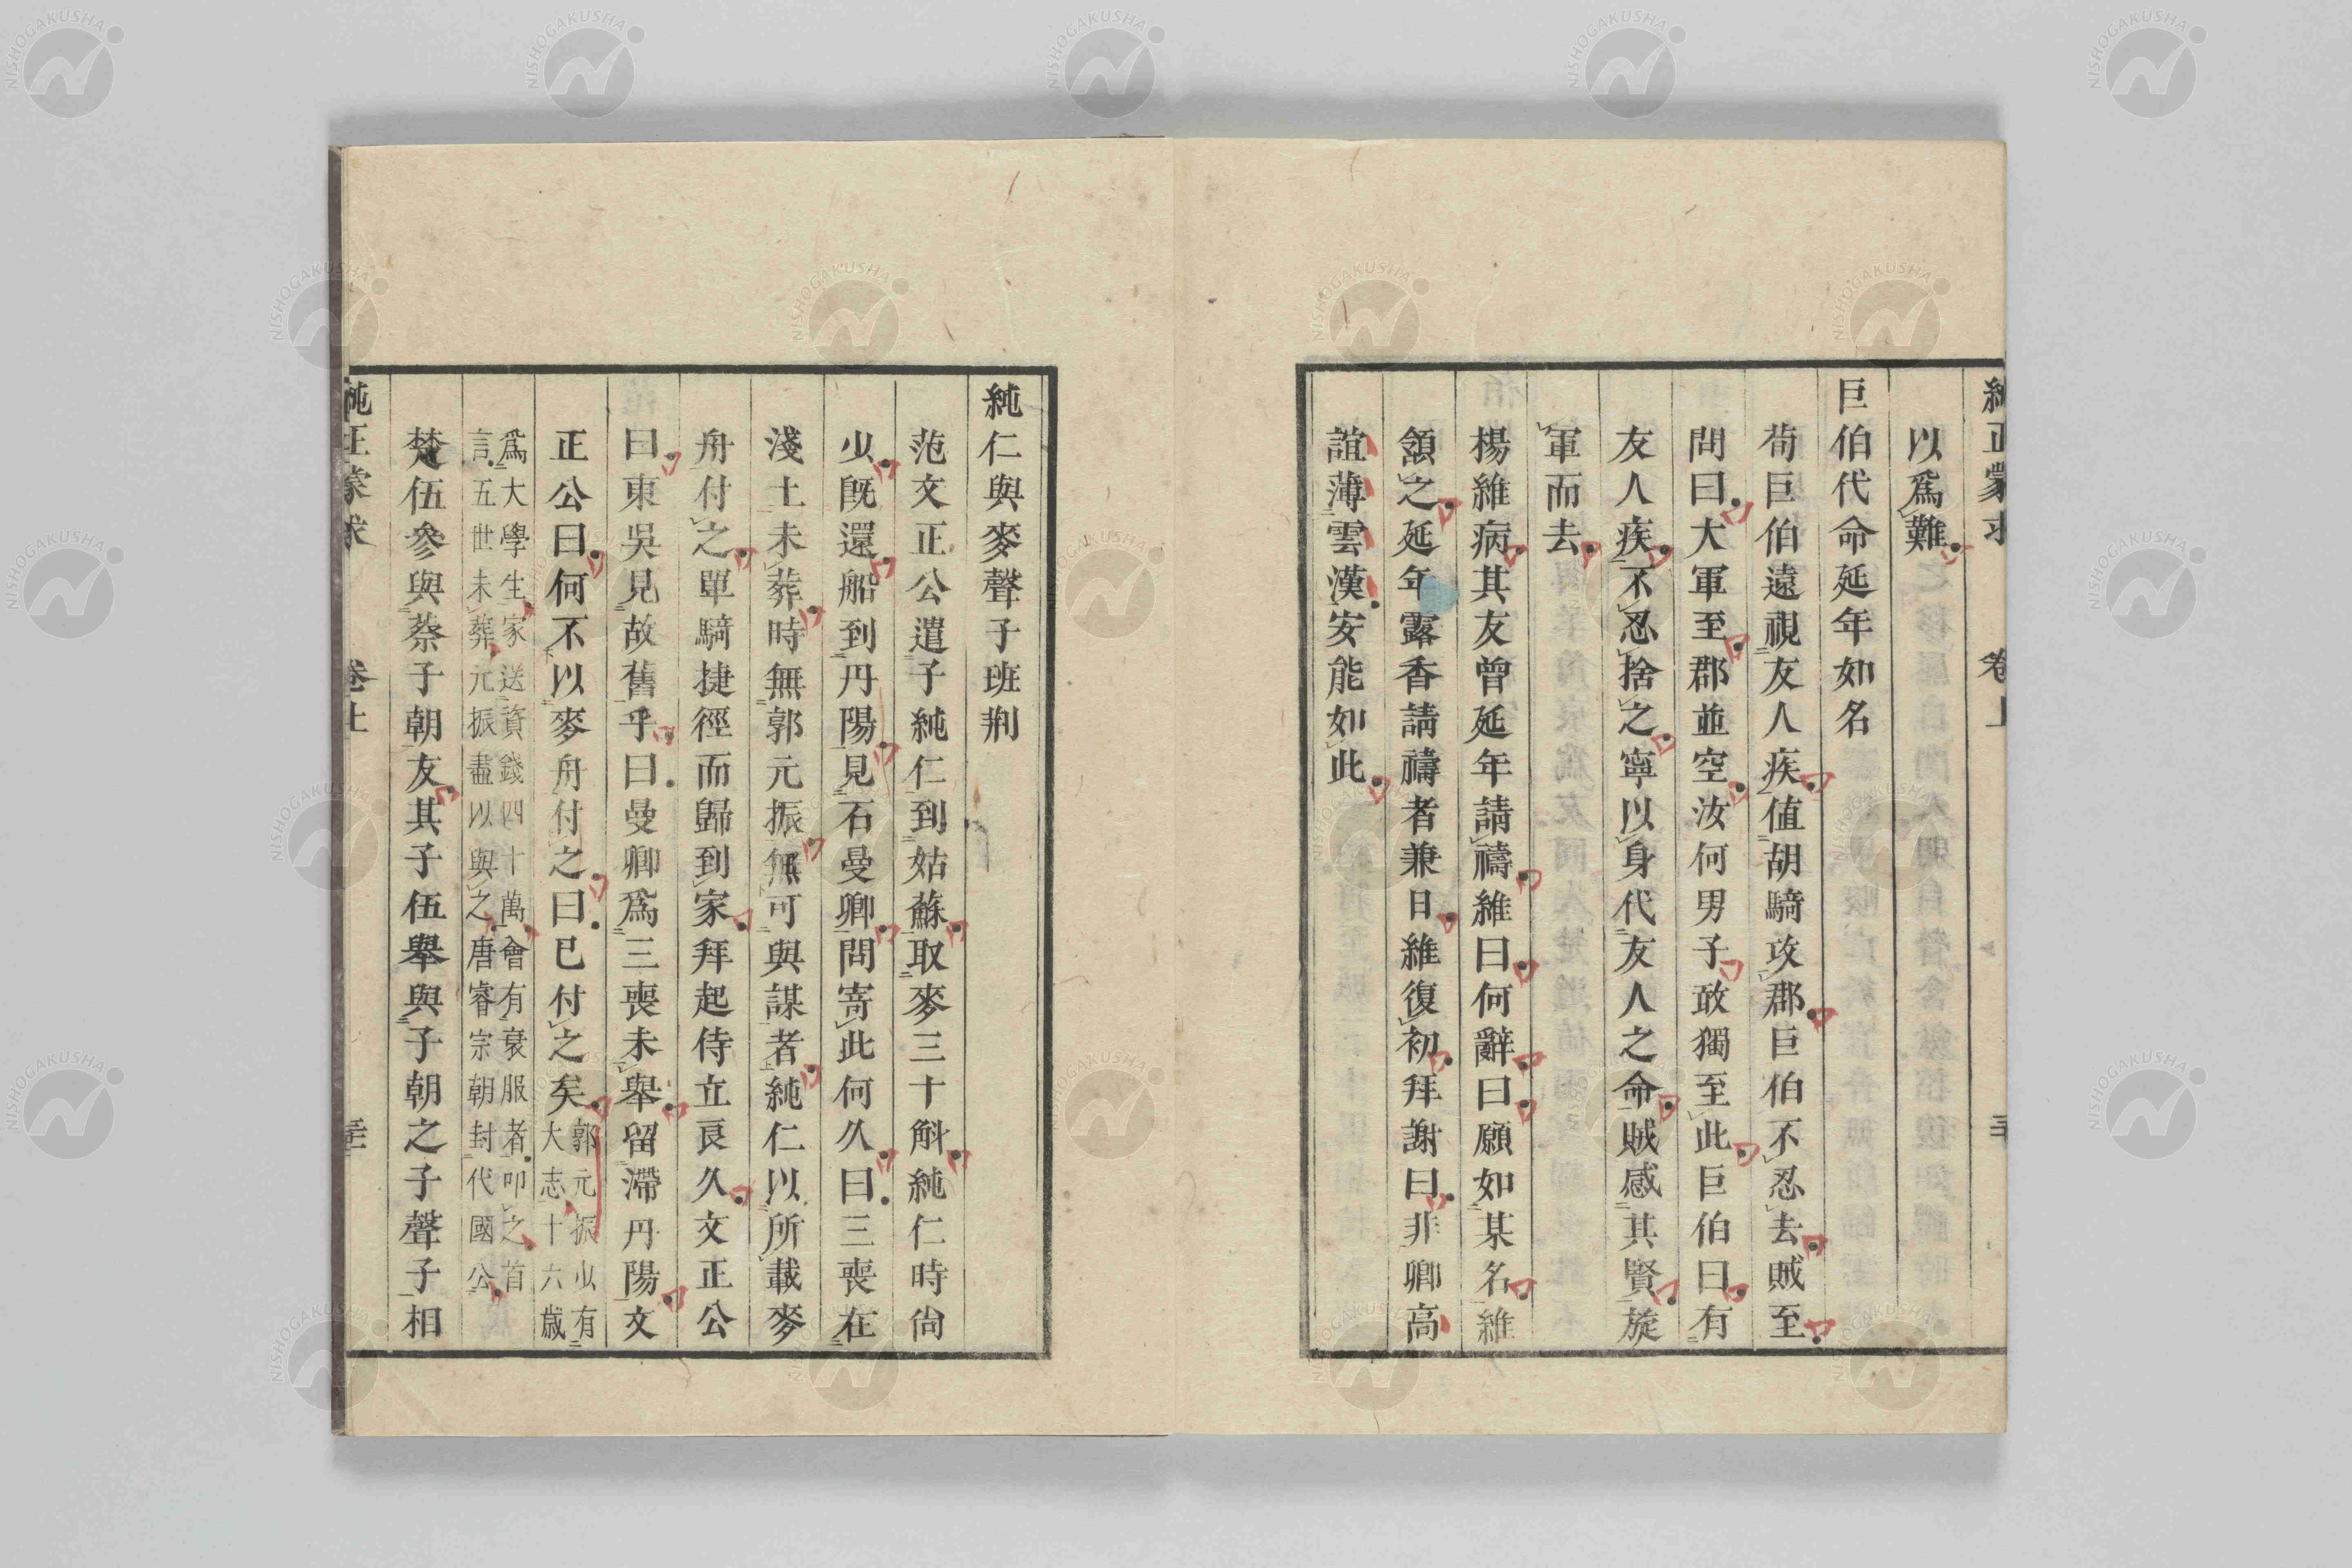 純正蒙求 卷上
以爲難
巨伯代命延年如名
荀巨伯遠視友人疾值胡騎攻郡巨伯不忍去賊至
問曰大軍至郡並空汝何男子敢獨至此巨伯曰有
友人疾不忍捨之寧以身代友人之命賊感其賢旋
軍而去
楊維病其友曾延年請禱維曰何辭曰願如某名維
頷之延年露香請禱者兼日維復初拜謝曰非卿高
誼薄雲漢安能如此
純仁與麥聲子班荆
范文正公遣子純仁到姑蘇取麥三十斛純仁時尙
少旣還船到丹陽見石曼卿問寄此何久曰三喪在
淺土未葬時無郭元振無可與謀者純仁以所載麥
舟付之單騎捷徑而歸到家拜起侍立良久文正公
曰東吳見故舊乎曰曼卿爲三喪未舉留滯丹陽文
正公曰何不以麥舟付之曰已付之矣郭元振少有
大志十六歲
爲大學生家送資錢四十萬會有衰服者叩之首
言五世未葬元振盡以與之唐睿宗朝封代國公
楚伍參與蔡子朝友其子伍舉與子朝之子聲子相
純正蒙求 卷上